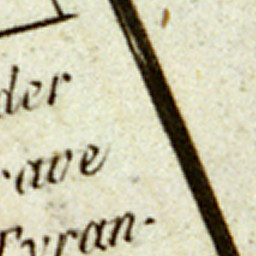 der
rave
Tyran-